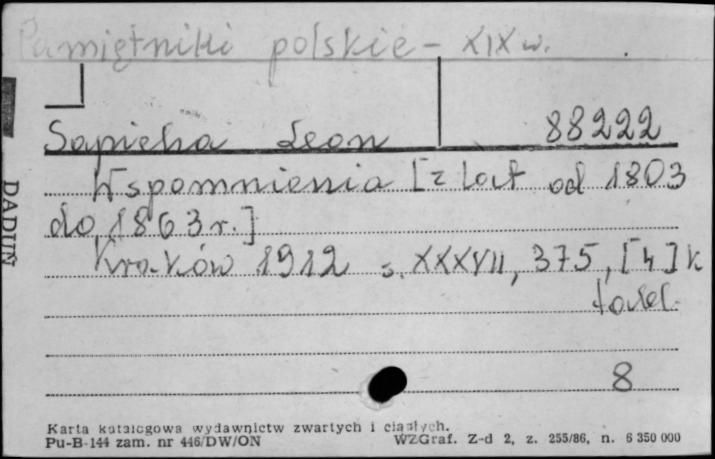 Pamiętniki polskie - XIX w.
Sapieha Leon 88222
Wspomnienia [z lat od 1803
do 1863 r.]
Kraków 1912 s. XXXVII, 375, [4] k
tabl.
8
DADUŃ
Karta katalogowa wydawnictw zwartych i ciągłych.
Pu-B-144 zam. nr 446/DW/ON WZGraf. Z-d 2, z. 255/86, n. 6 350 000